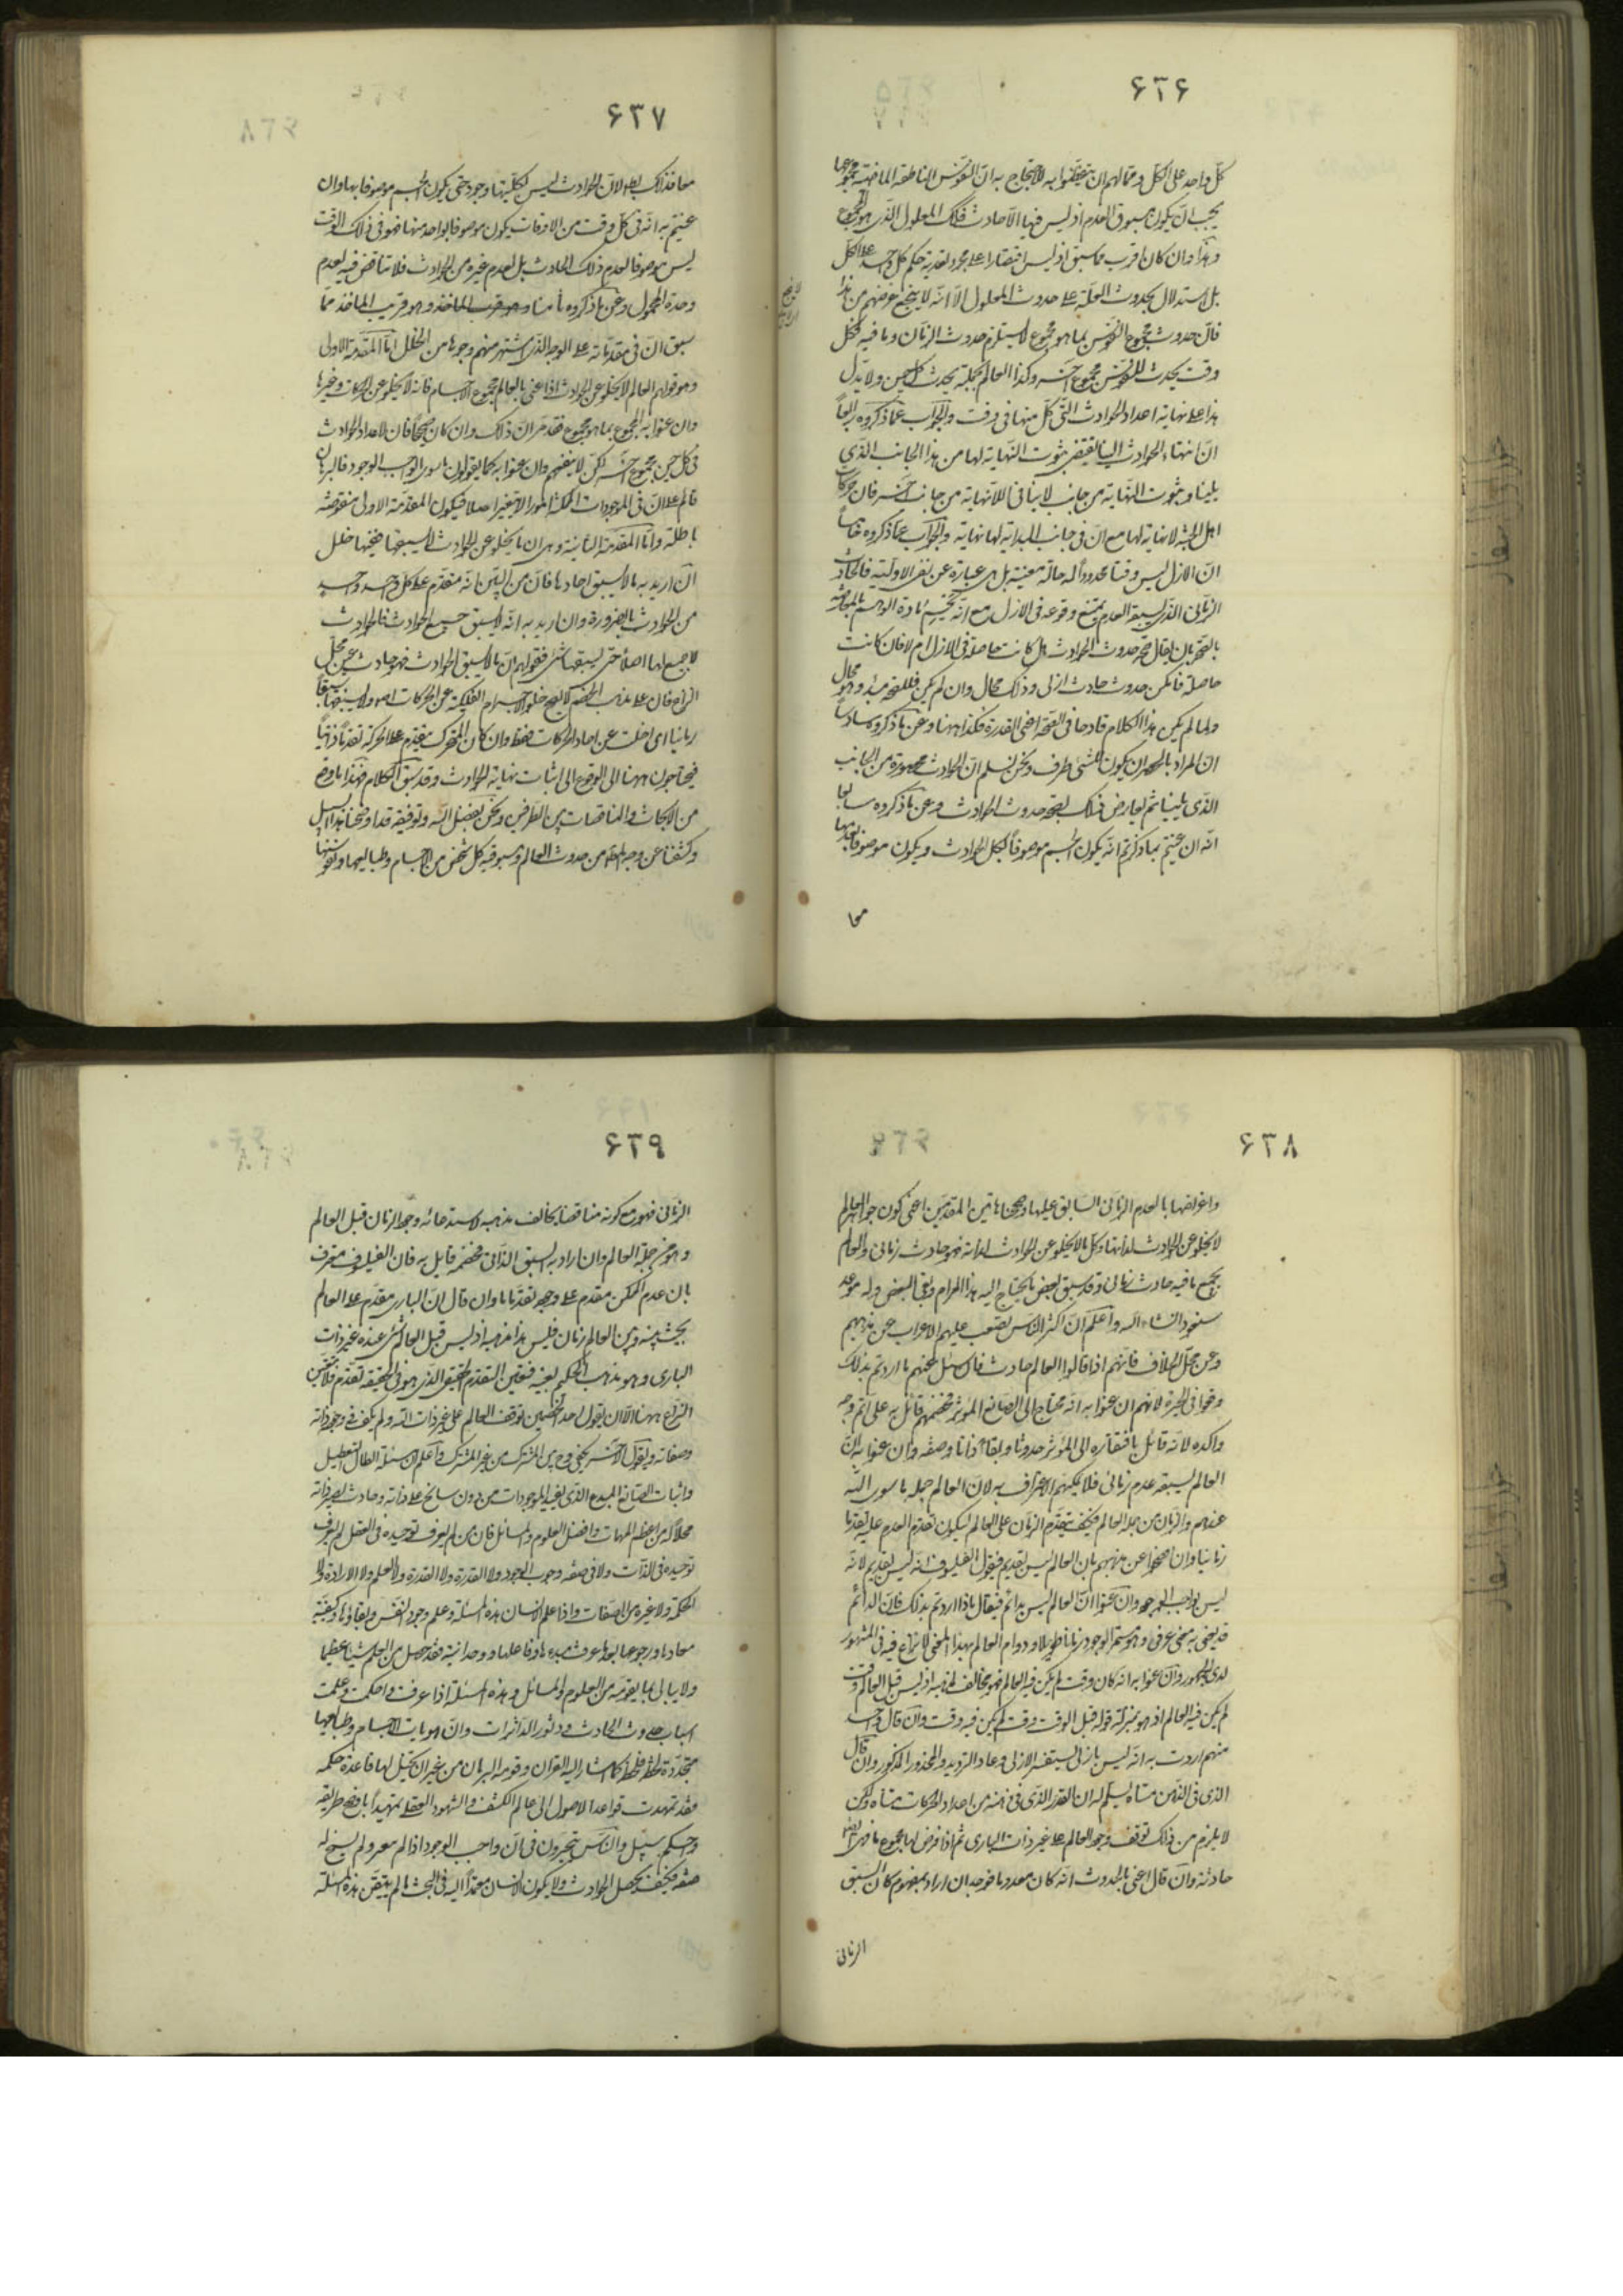 ٤٣٦
كل واحد على الكل ومما لهم ان يتيقظوا به للاحتجاج به ان النفوس الناطقة الماضية مجموعها
يجب ان يكون مسبوق العدم اذ ليس فيها الا حادث فذلك المعلول الذى هو المجموع
وهذا وان كان اقرب مما سبق اذ ليس اقتصارا على مجرد تعدية حكم كل واحد على الكل
بل استدلال بحدوث العلة على حدوث المعلول الا انه لا ينجح غرضهم من هذا
فان حدوث مجموع النفوس بما هو مجموع لا يستلزم حدوث الزمان وما فيه فكل
وقت يحدث للنفوس مجموع آخر وكذا العالم بجملته يحدث كل حين ولا يدل
هذا على نهاية اعداد الحوادث التى كل منها فى وقت والجواب عما ذكروه رابعا
ان انتهاء الحوادث الينا يقتضى ثبوت النهاية لها من هذا الجانب الذى
يلينا وثبوت النهاية من جانب لا ينافى اللانهاية من جانب آخر فان حركات
اهل الجنة لا نهاية لها مع ان فى جانب البداية لها نهاية والجواب عما ذكروه خامسا
ان الازل ليس وقتا محدودا له حالة معينة بل هى عبارة عن نفى الاولية فالحادث
الزمانى الذى يسبقه العدم يمتنع وقوعه فى الازل مع انه مادة الوهم بالمعارضة
بالصحة بان يقال صحة حدوث الحوادث هل كانت حاصلة فى الازل ام لا فان كانت
حاصلة فامكن حدوث حادث ازلى وذلك محال وان لم يكن فللصحة مبدء وهو محال
ولما لم يكن هذا الكلام قادحا فى الصحة اعنى القدرة فكذا ههنا وعن ما ذكروه سادسا
ان المراد بالحصر ان يكون للشئ طرف ونحن نسلم ان الحوادث محصورة من الجانب
الذى يلينا ثم يعارض ذلك بصحة حدوث الحوادث وعن ما ذكروه سابعا
انه ان عنيتم بما ذكرتم انه يكون الجسم موصوفا بكل الحوادث ويكون موصوفا بعدمها
معا
٤٣٧
معا فذلك باطل لان الحوادث ليس لكليتها وجود حتى يكون الجسم موصوفا بها وان
عنيتم به انه فى كل وقت من الاوقات يكون موصوفا بواحد منها فهو فى ذلك الوقت
ليس موصوفا بعدم ذلك الحادث بل بعدم غيره من الحوادث فلا تناقض فيه لعدم
وحدة المحمول وعن ما ذكروه ثامنا وهو قرب الماخذ وهو قريب الماخذ مما
سبق ان فى مقدماته على الوجه الذى اشتهر منهم وجوها من الخلل اما المقدمة الاولى
وهو قولهم العالم لا يخلو عن الحوادث اذا عنى بالعالم مجموع الاجسام فانه لا يخلو عن الحركات وغيرها
وان عنوا به المجموع بما هو مجموع فقد مر ان ذلك وان كان صحيحا فان لاعداد الحوادث
فى كل حين مجموع آخر لكن لا ينفعهم وان عنوا به كما يقولون ما سوى الواجب الوجود فالبرهان
قائم على ان فى الموجودات الممكنة امورا لا تتغير اصلا فيكون المقدمة الاولى منقوضة
باطلة واما المقدمة الثانية وهى ان ما يخلو عن الحوادث لا يسبقها ففيها خلل
ان اريد به ما لا يسبق احادها فان من البين انه متقدم على كل واحد واحد
من الحوادث بالضرورة وان اريد به انه لا يسبق جميع الحوادث فالحوادث
لا جميع لها اصلا حتى يسبقها شئ فقولهم ان ما لا يسبق الحوادث فهو حادث عين محل
النزاع فان على مذهب الخصم لا يصح خلو الاجسام الفلكية عن الحركات اصلا ولا يسبقها سبقا
زمانيا اى اخلت عن احاد الحركات فقط وان كان المتحرك يتقدم على الحركة تقدما ذاتيا
فيحتاجون ههنا الى الوقوع الى اثبات نهاية الحوادث وقد سبق الكلام فهذا ما وقع
من الابحاث والمناقضات بين الطرفين ونحن بفضل الله وتوفيقه قد اوضحنا هذا السبيل
وكشفنا عن وجه من حدوث العالم ومسبوقية كل شخص من الاجسام وطبايعها ونفوسها
٤٣٨
واعراضها بالعدم الزمانى السابق عليها وصححنا هاتين المقدمتين اعنى كون جواهر العالم
لا يخلو عن الحوادث لذاتها وكل ما لا يخلو عن الحوادث لذاته فهو حادث زمانى والعالم
بجميع ما فيه حادث زمانى وقد سبق بعض ما يحتاج اليه هذا المرام وبقى البعض وله موعد
سنعود انشاء الله واعلم ان اكثر الناس يصعب عليهم الاعراب عن مذهبهم
وعن محل الخلاف فانهم اذا قالوا العالم حادث فان سئل عنهم ما اردتم بذلك
وقعوا فى الحيرة لانهم ان عنوا به انه محتاج الى الصانع المؤثر فخصمهم قائل به على اتم وجه
واكده لانه قائل بافتقاره الى المؤثر حدوثا وبقاء ذاتا وصفة وان عنوا به ان
العالم يسبقه عدم زمانى فلا يمكنهم الاعتراف به لان العالم جملة ما سوى الله
عندهم والزمان من جملة العالم فكيف يتقدم الزمان على العالم ليكون تقدم العدم عليه تقدما
زمانيا وان افصحوا عن مذهبهم بان العالم ليس بقديم فيقول الفيلسوف انه ليس بقديم لانه
ليس بواجب الوجود وان عنوا ان العالم ليس بدائم فيقال ماذا اردتم بذلك فان الدائم
قد يعنى به معنى عرفى وهو مستمر الوجود زمانا طويلا ودوام العالم بهذا المعنى لا نزاع فيه فى المشهور
لدى الجمهور وان عنوا به انه كان وقت لم يكن فيه العالم فهو مخالف لمذهبه اذ ليس قبل العالم وقت
لم يكن فيه العالم اذ هو بمنزلة قوله قبل الوقت وقت لم يكن فيه وقت وان قال واحد
منهم اردت به انه ليس بازلى يستفسر الازلى وعاد الترديد والمحذور المذكور وان قال
الذى فى الذهن متناه يسلم له ان القدر الذى فى ذهنه من اعداد الحركات متناه ولكن
لا يلزم من ذلك توقف وجود العالم على غير ذات البارى ثم اذا فرض لها مجموع ما فهى ايضا
حادثة وان قال اعنى بالحدوث انه كان معدوما فوجد ان اراد بمفهوم كان السبق
الزمانى
٤٣٩
الزمانى فهو مع كونه مناقضا يخالف مذهبه لاستدعائه وجود الزمان قبل العالم
وهو من جملة العالم وان اراد به السبق الذاتى فخصمه قايل به فان الفيلسوف معترف
بان عدم الممكن متقدم على وجوده تقدما ما وان قال ان البارى مقدم على العالم
بحيث بينه وبين العالم زمان فليس هذا مذهبه اذ ليس قبل العالم شئ عنده غير ذات
البارى وهو مذهب الحكيم بعينه فتعين التقدم الحقيقى الذى هو فى الحقيقة تقدم فلا يتعين
النزاع ههنا الا ان يقول احد الخصمين توقف العالم على غير ذات الله ولم يكف فى وجوده ذاته
وصفاته ويقول الآخر يكفى وح يتبين المشرك من غير المشرك واعلم ان مسئلة ابطال التعطيل
واثبات الصانع المبدع الذى يفيد الموجودات من دون سانح على ذاته وحادث يصير ذاته
محلا له من اعظم المهمات وافضل العلوم والمسائل فان من لم يعرف توحيده فى الفعل لم يعرف
توحيده فى الذات ولا فى صفة وجوب الوجود ولا القدرة ولا العلم ولا الارادة ولا
الحكمة ولا غيره من الصفات واذا علم الانسان هذه المسئلة وعلم وجود النفس وبقائها وكيفية
معادها ورجوعها بعد ما عرف مبدءها وفاعلها ووحدانيته فقد حصل من العلم شيئا عظيما
ولا يبالى بما يفوته من العلوم والمسائل وهذه المسئلة اذا عرفت واحكمت وعلمت
اسباب حدوث الحادث ودثور الداثرات وان هويات الاجسام وطبايعها
متجددة لحظة فلحظة كما اشار اليه القران وقومه البرهان من غير ان يختل لها قاعدة حكمية
فقد تمهدت قواعد الاصول الى عالم الكشف والشهود العقلى تمهيدا باوضح طريقة
واحكم سبيل والناس يتحيرون فى ان واجب الوجود اذا لم يتغير ولم يسنح له
صفة فكيف يحصل الحوادث ولا يكون الانسان معتمدا اليه فى البحث ما لم يتيقن هذه المسئلة